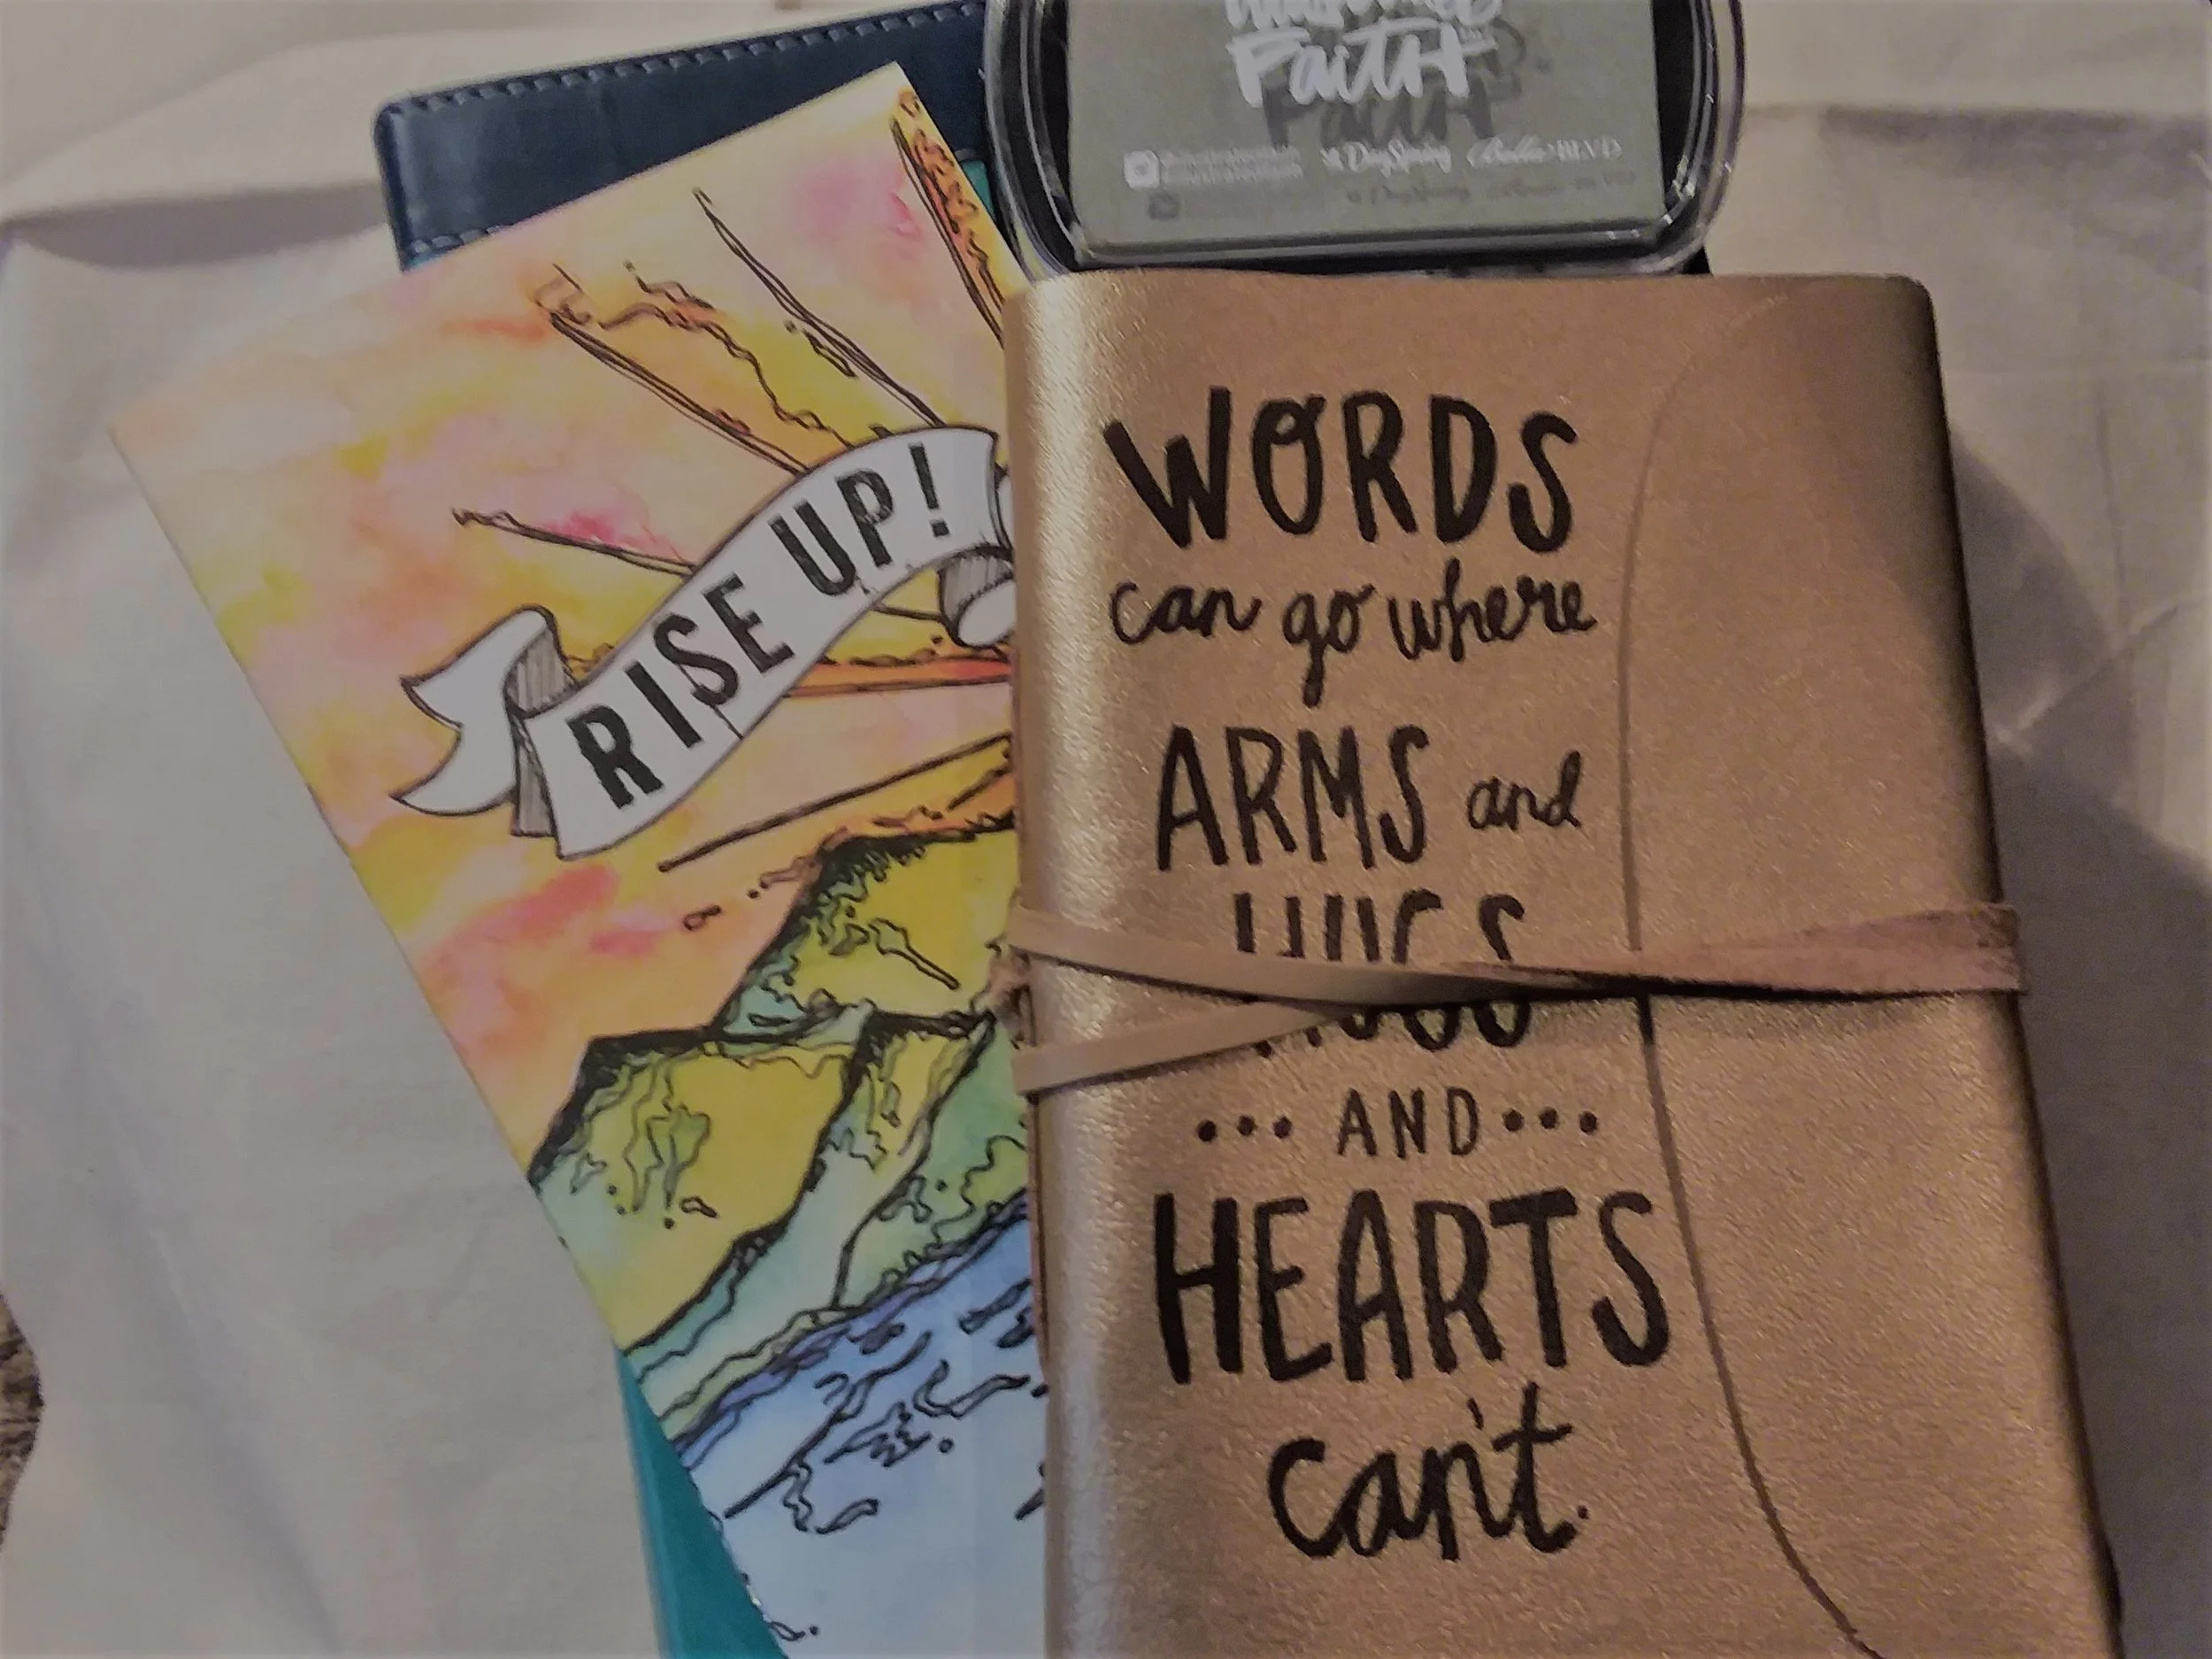 FAITH
DaySpring Bella BLVD
RISE UP!
WORDS
can go where
ARMS and
HUGS
••• AND •••
HEARTS
can't.